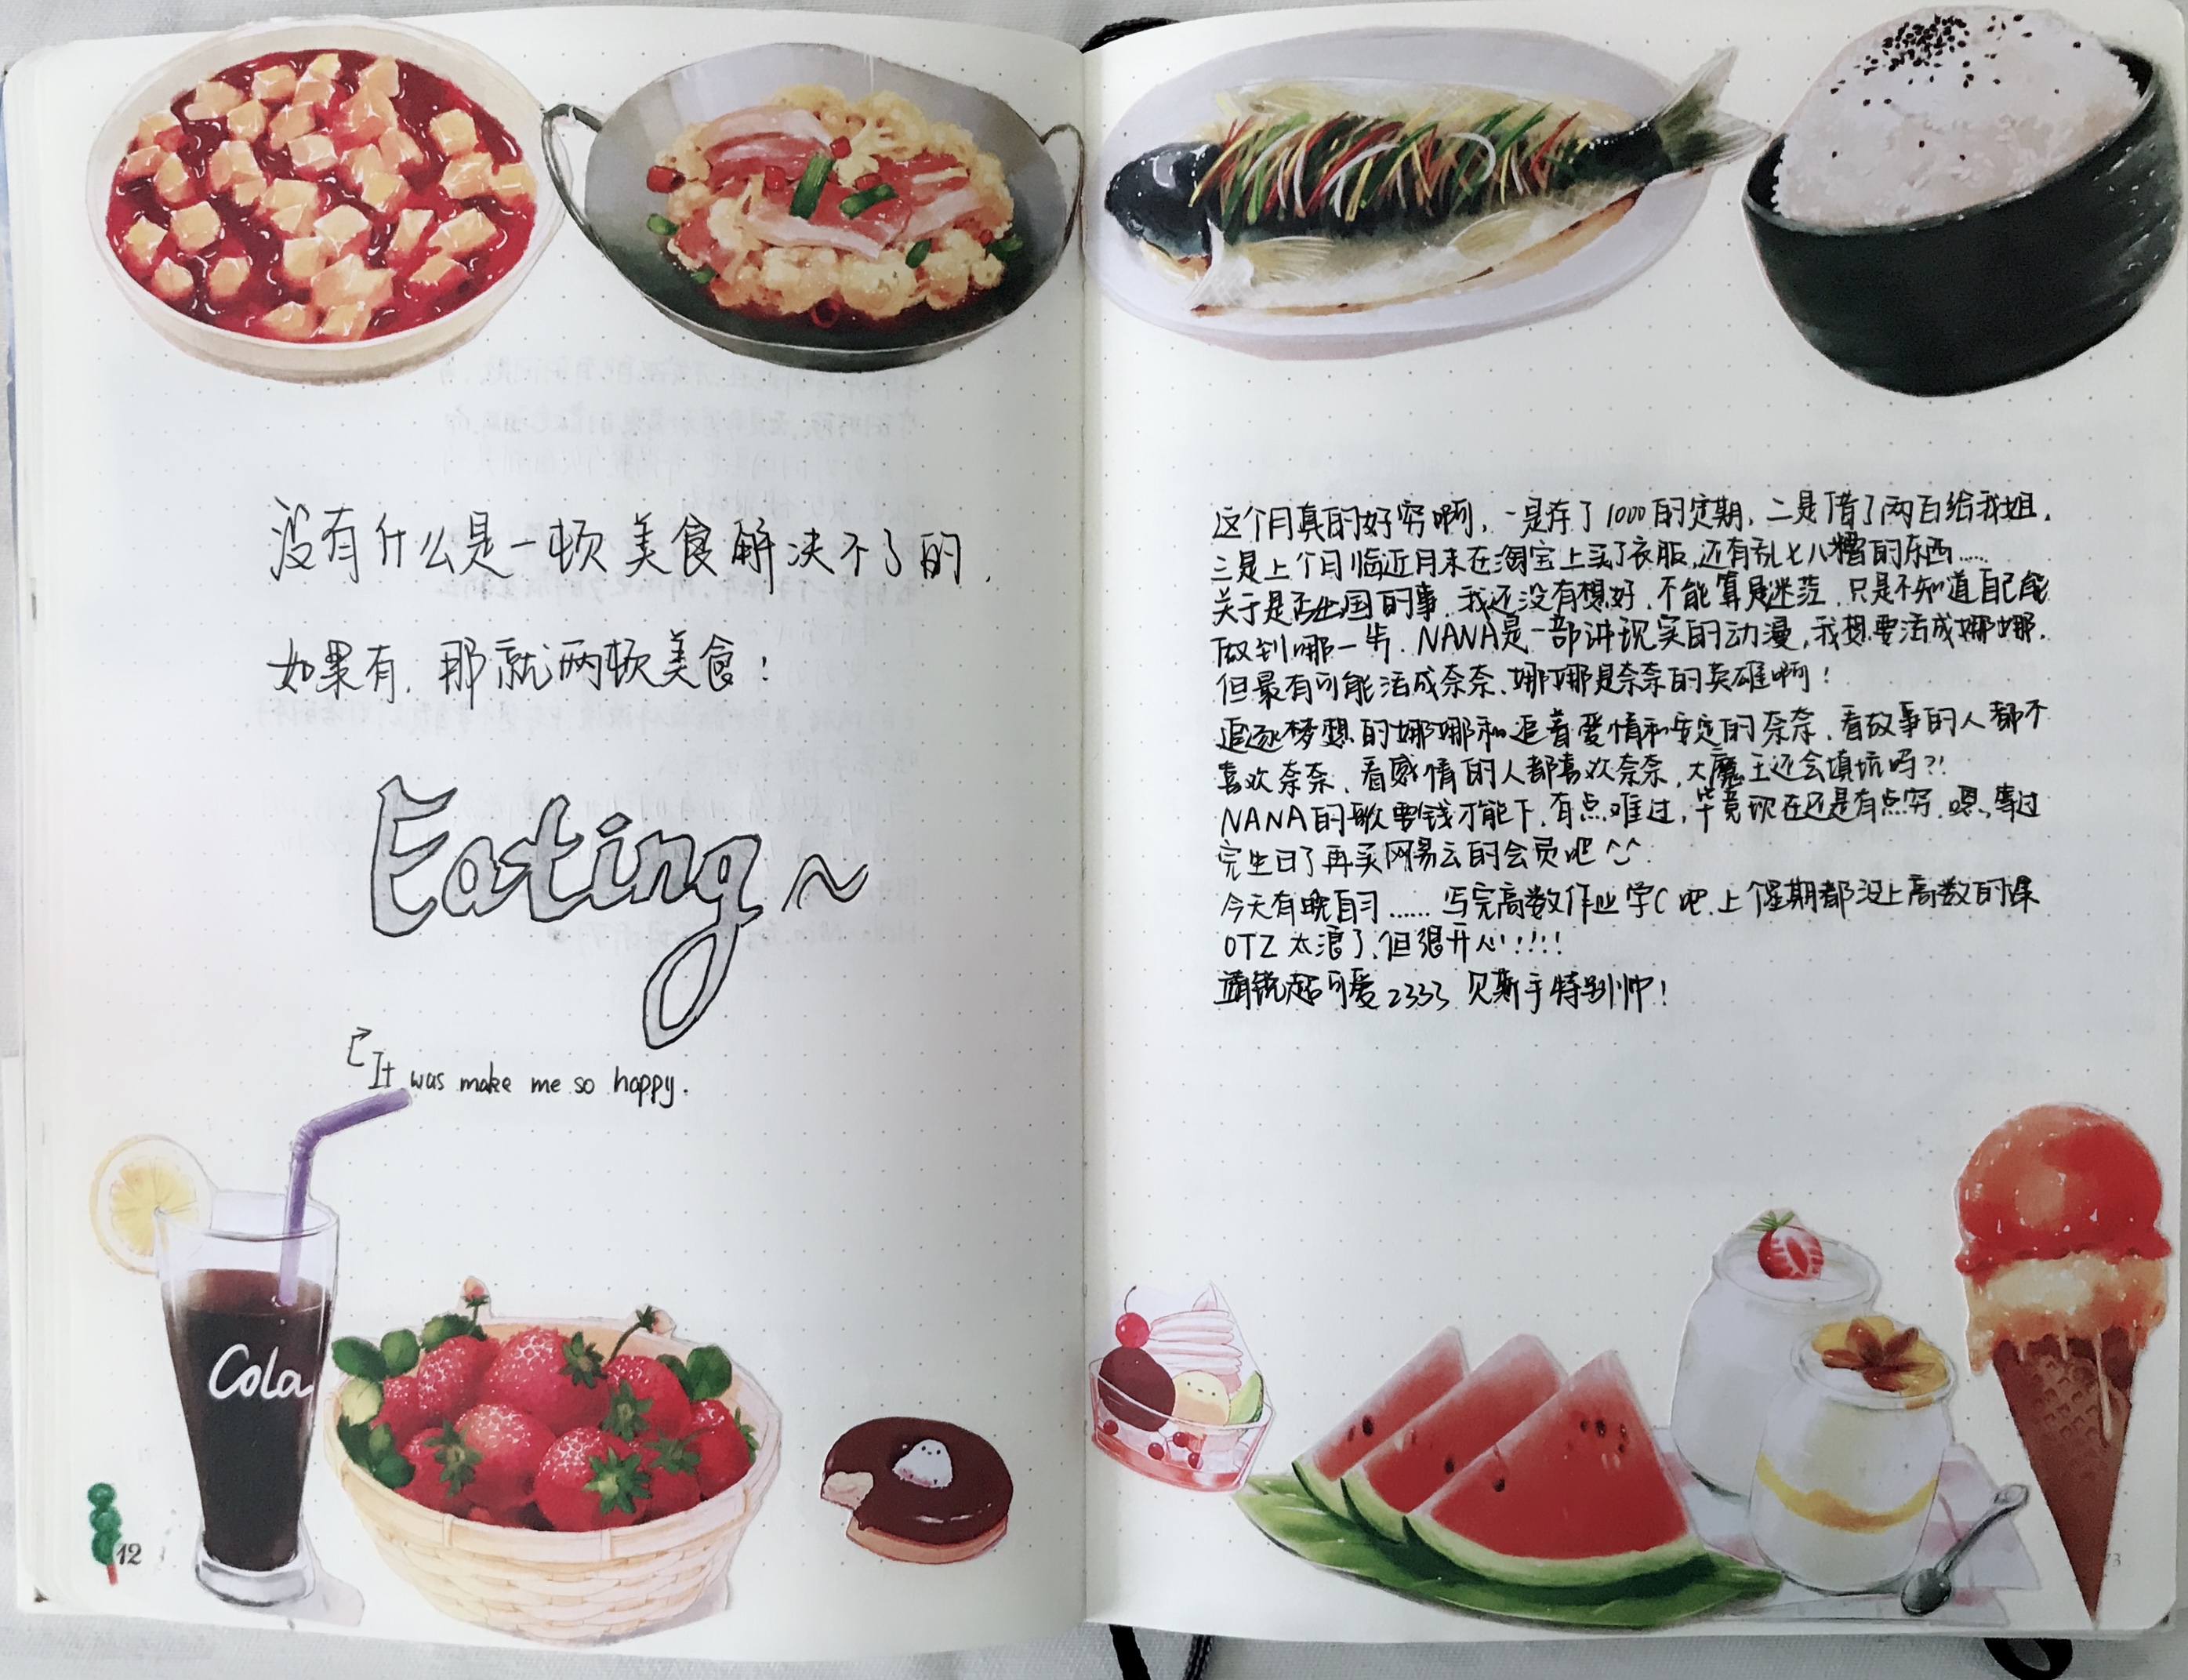 没有什么是一顿美食解决不了的.
如果有.那就两顿美食！
Eating~
It was make me so happy.
Cola
12
这个月真的好穷啊,一是存了1000的定期,二是借了两百给我姐.
三是上个月临近月末在淘宝上买了衣服,还有乱七八糟的东西……
关于是否出国的事.我还没有想好.不能算是迷茫.只是不知道自己能
做到哪一步.NANA是一部讲现实的动漫,我想要活成娜娜.
但最有可能活成奈奈.娜娜是奈奈的英雄啊！
追逐梦想的娜娜和追着爱情和安定的奈奈.看故事的人都不
喜欢奈奈.看感情的人都喜欢奈奈,大魔王还会填坑吗?!
NANA的歌要钱才能下.有点难过,毕竟现在还是有点穷.嗯、等过
完生日了再买网易云的会员吧^^.
今天有晚自习……写完高数作业学C吧.上个星期都没上高数的课
OTZ太浪了.但很开心!!!!
超可爱2333 贝斯手特别帅!
73